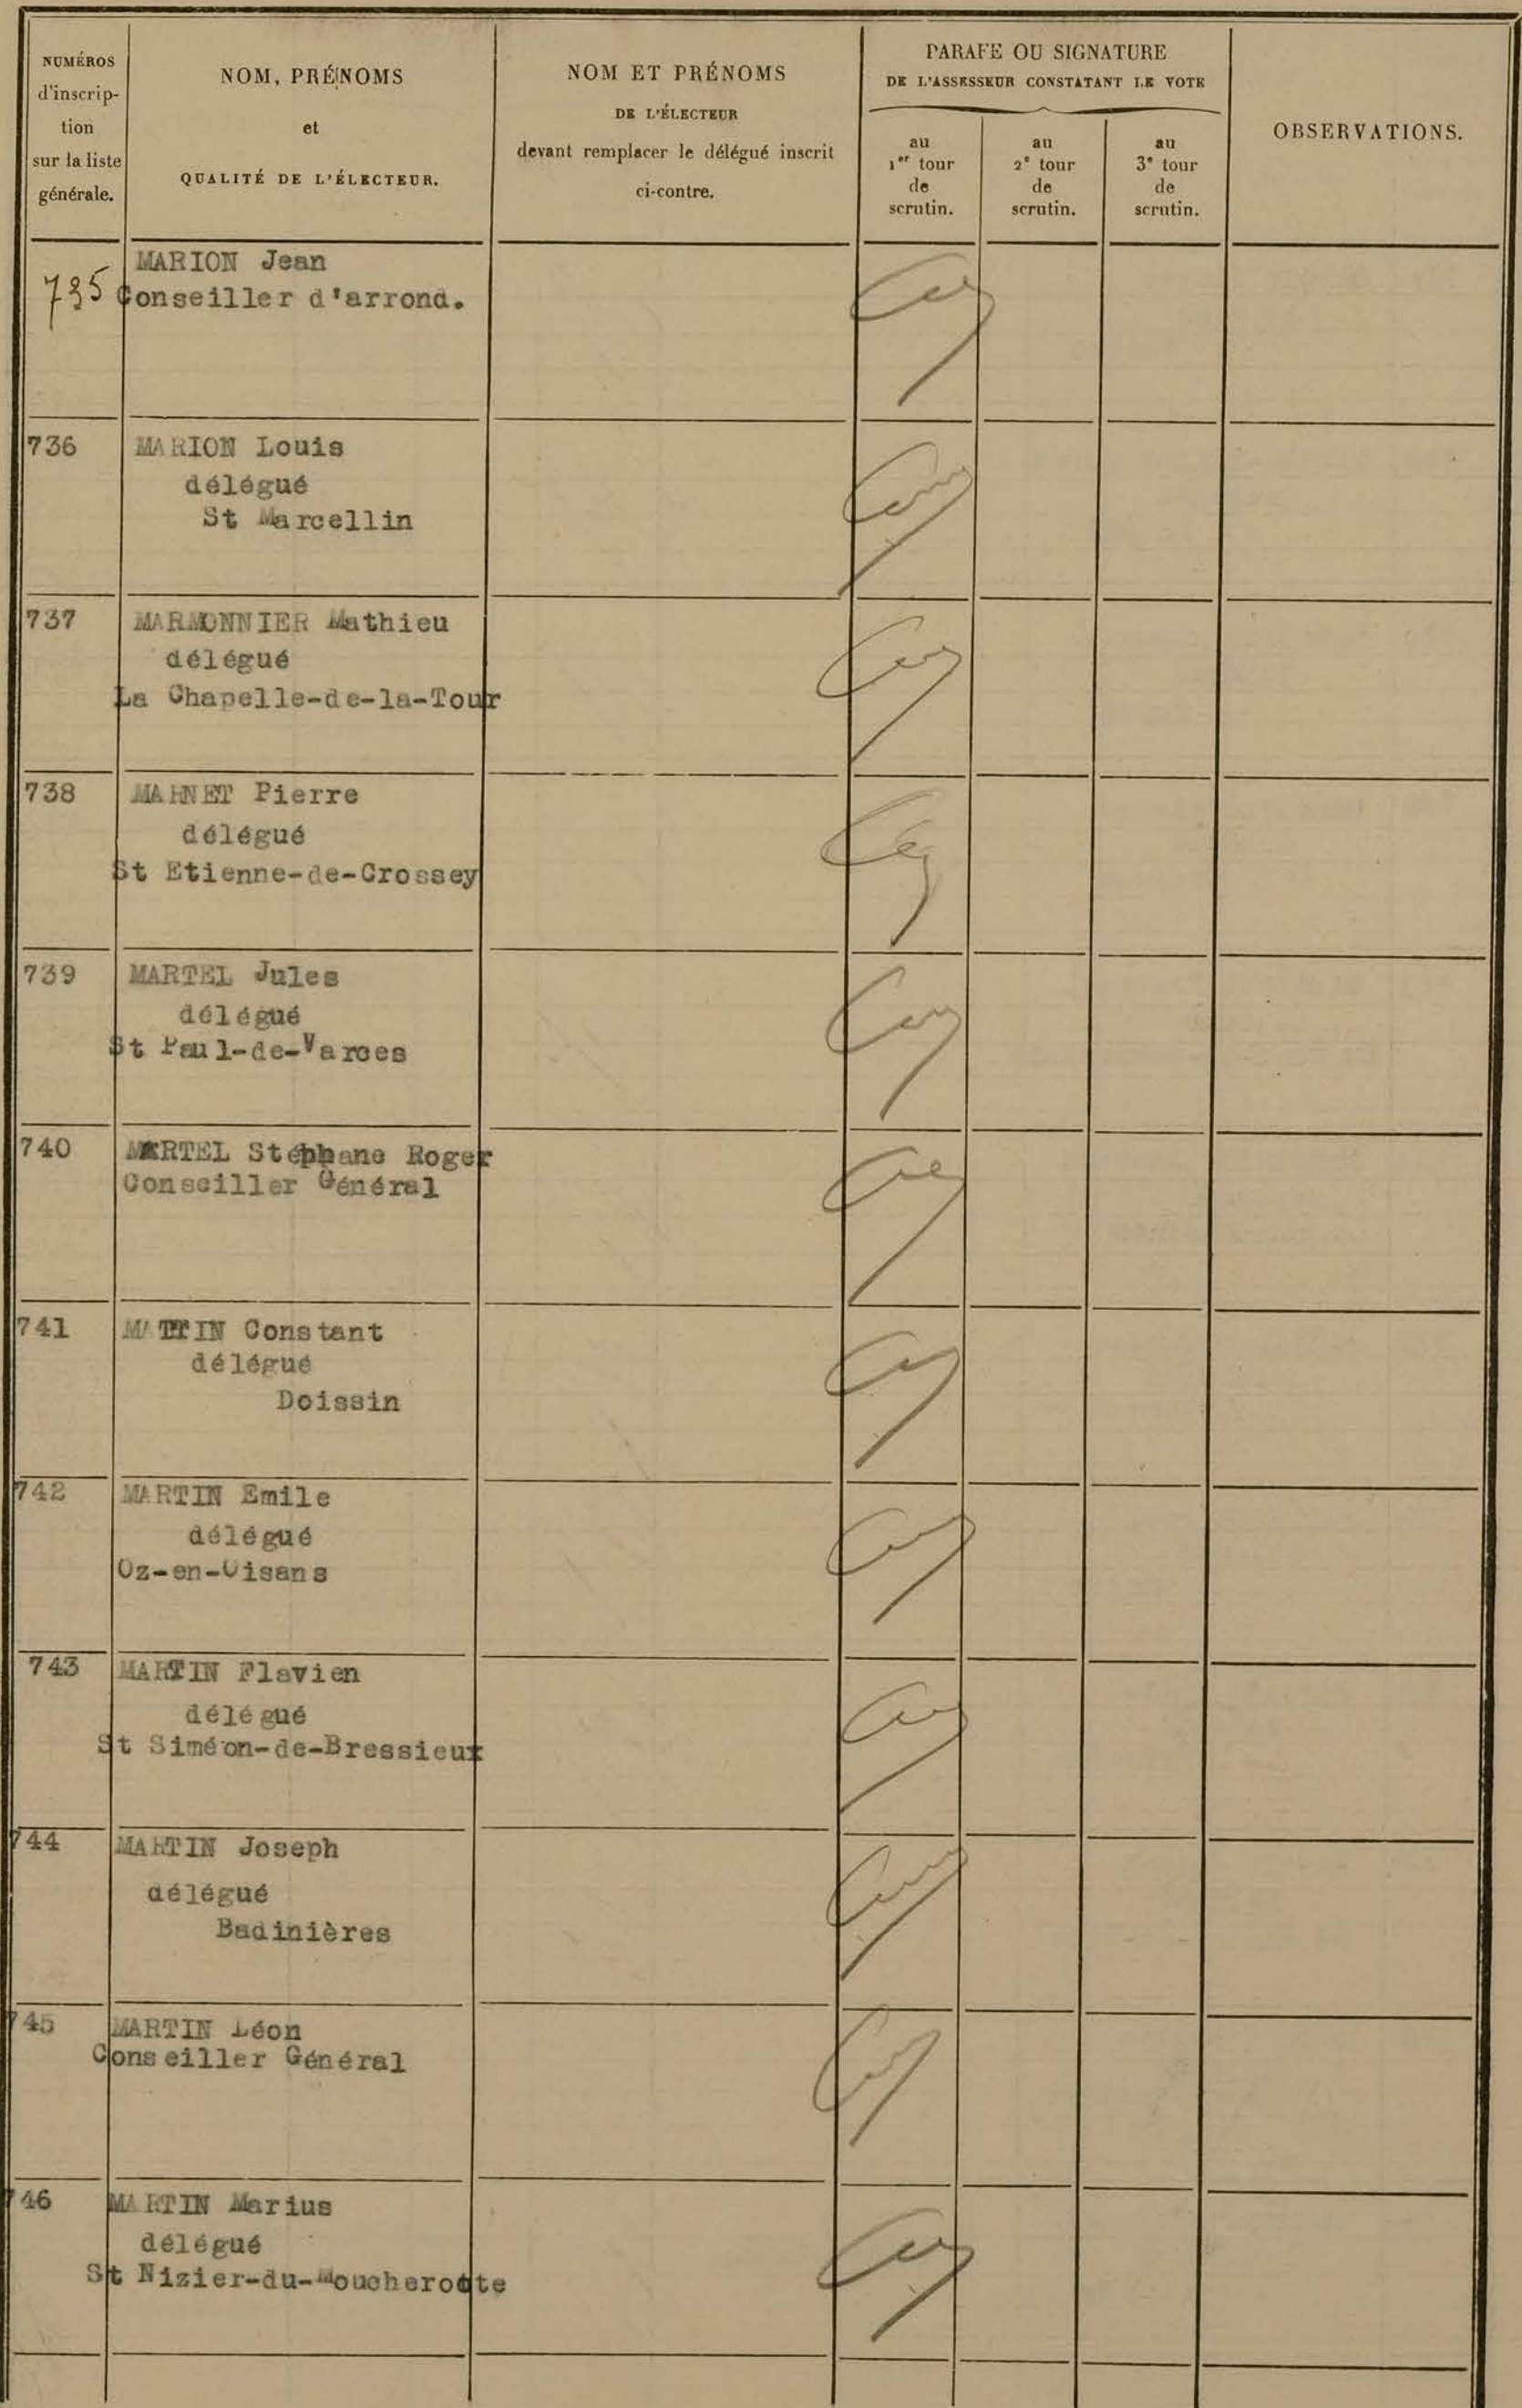 NUMÉROS
d'inscrip-
tion
sur la liste
générale.
NOM, PRÉNOMS
et
QUALITÉ DE L'ÉLECTEUR.
NOM ET PRÉNOMS
DE L'ÉLECTEUR
devant remplacer le délégué inscrit
ci-contre.
PARAFE OU SIGNATURE
DE L'ASSESSEUR CONSTATANT LE VOTE
au
1er tour
de
scrutin.
au
2e tour
de
scrutin.
au
3e tour
de
scrutin.
OBSERVATIONS.
735 MARION Jean
Conseiller d'arrond.
736 MARION Louis
délégué
St Marcellin
737 MARMONNIER Mathieu
délégué
La Chapelle-de-la-Tour
738 MARNET Pierre
délégué
St Etienne-de-Crossey
739 MARTEL Jules
délégué
St Paul-de-Varces
740 MARTEL Stéphane Roger
Conseiller Général
741 MATTIN Constant
délégué
Doissin
742 MARTIN Emile
délégué
Oz-en-Oisans
743 MARTIN Flavien
délégué
St Siméon-de-Bressieux
744 MARTIN Joseph
délégué
Badinières
745 MARTIN Léon
Conseiller Général
746 MARTIN Marius
délégué
St Nizier-du-Moucherotte